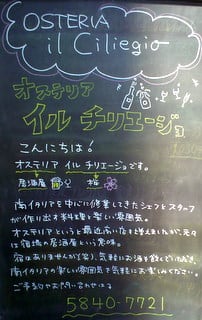 OSTERIA
il Ciliegio
オステリア
イル チリエージョ
こんにちは!
オステリア イル チリエージョです。
居酒屋 桜
南イタリアを中心に修業してきたシェフとスタッフ
が作り出す料理と楽しい雰囲気。
オステリアというと最近高い店も増えましたが、元々
は宿場の居酒屋という意味。
宿はありませんが(笑)、気軽にお酒を飲んでいただき、
南イタリアの楽しい雰囲気で気軽にお楽しみください。
ご予約
5840-7721